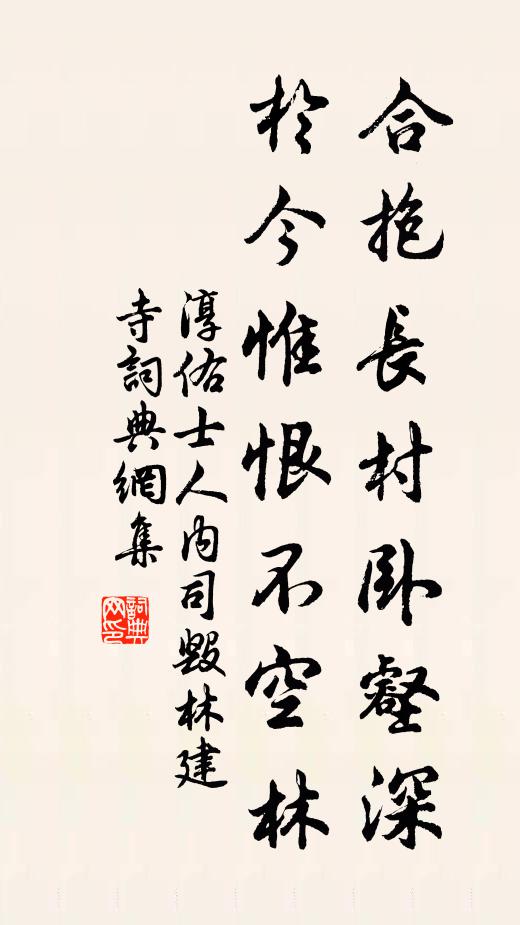 合抱長村卧壑深
於今惟恨不空林
淳佑士人内司毀林建
寺詞典網集
詞典
网印